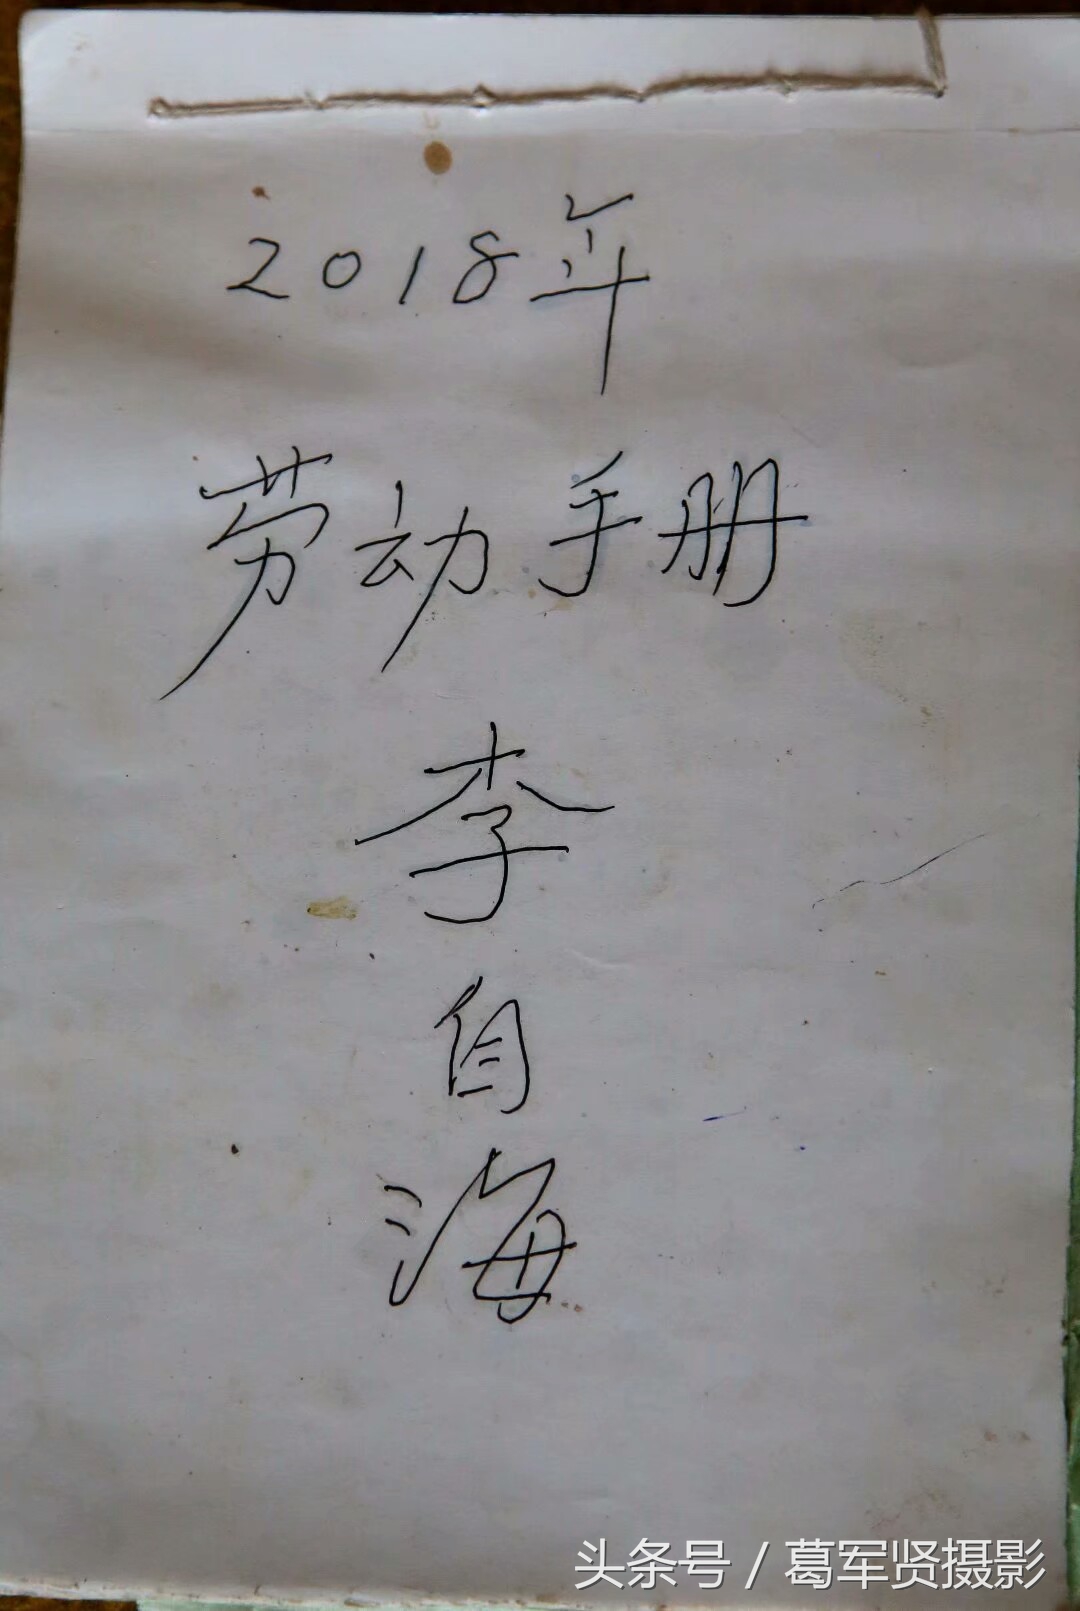 2018年
劳动手册
李
自
海
头条号 / 葛军贤摄影